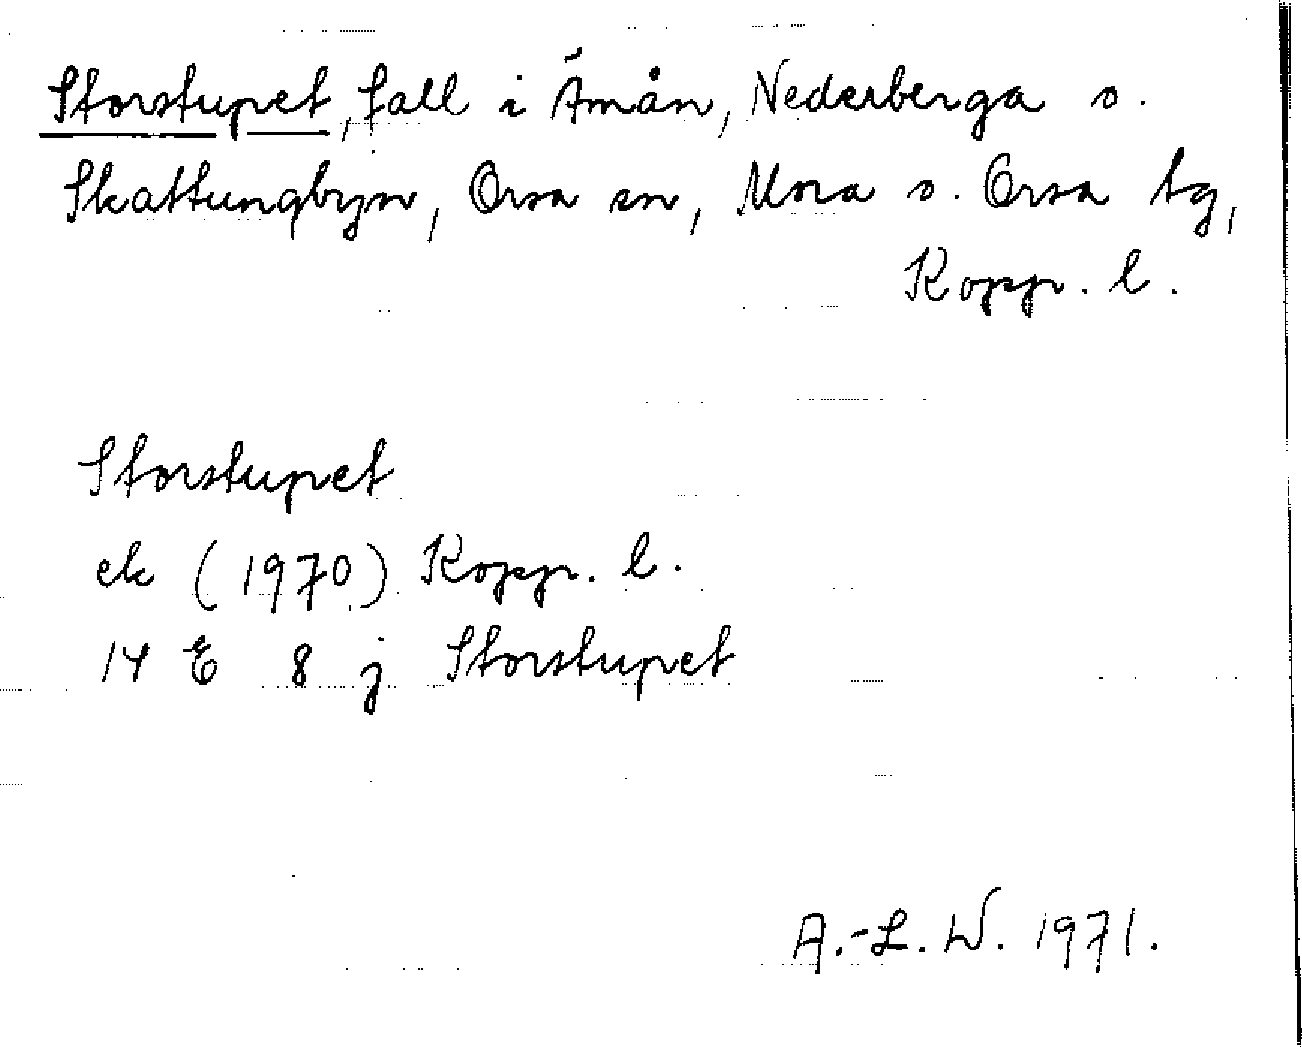 Storstupet, fall i Ämån, Nederberga o.
Skattungbyn, Orsa sn, Mora o. Orsa tg,
Kopp. l.
Storstupet
ek (1970) Kopp. l.
14 E 8 j Storstupet
A.-L. W. 1971.